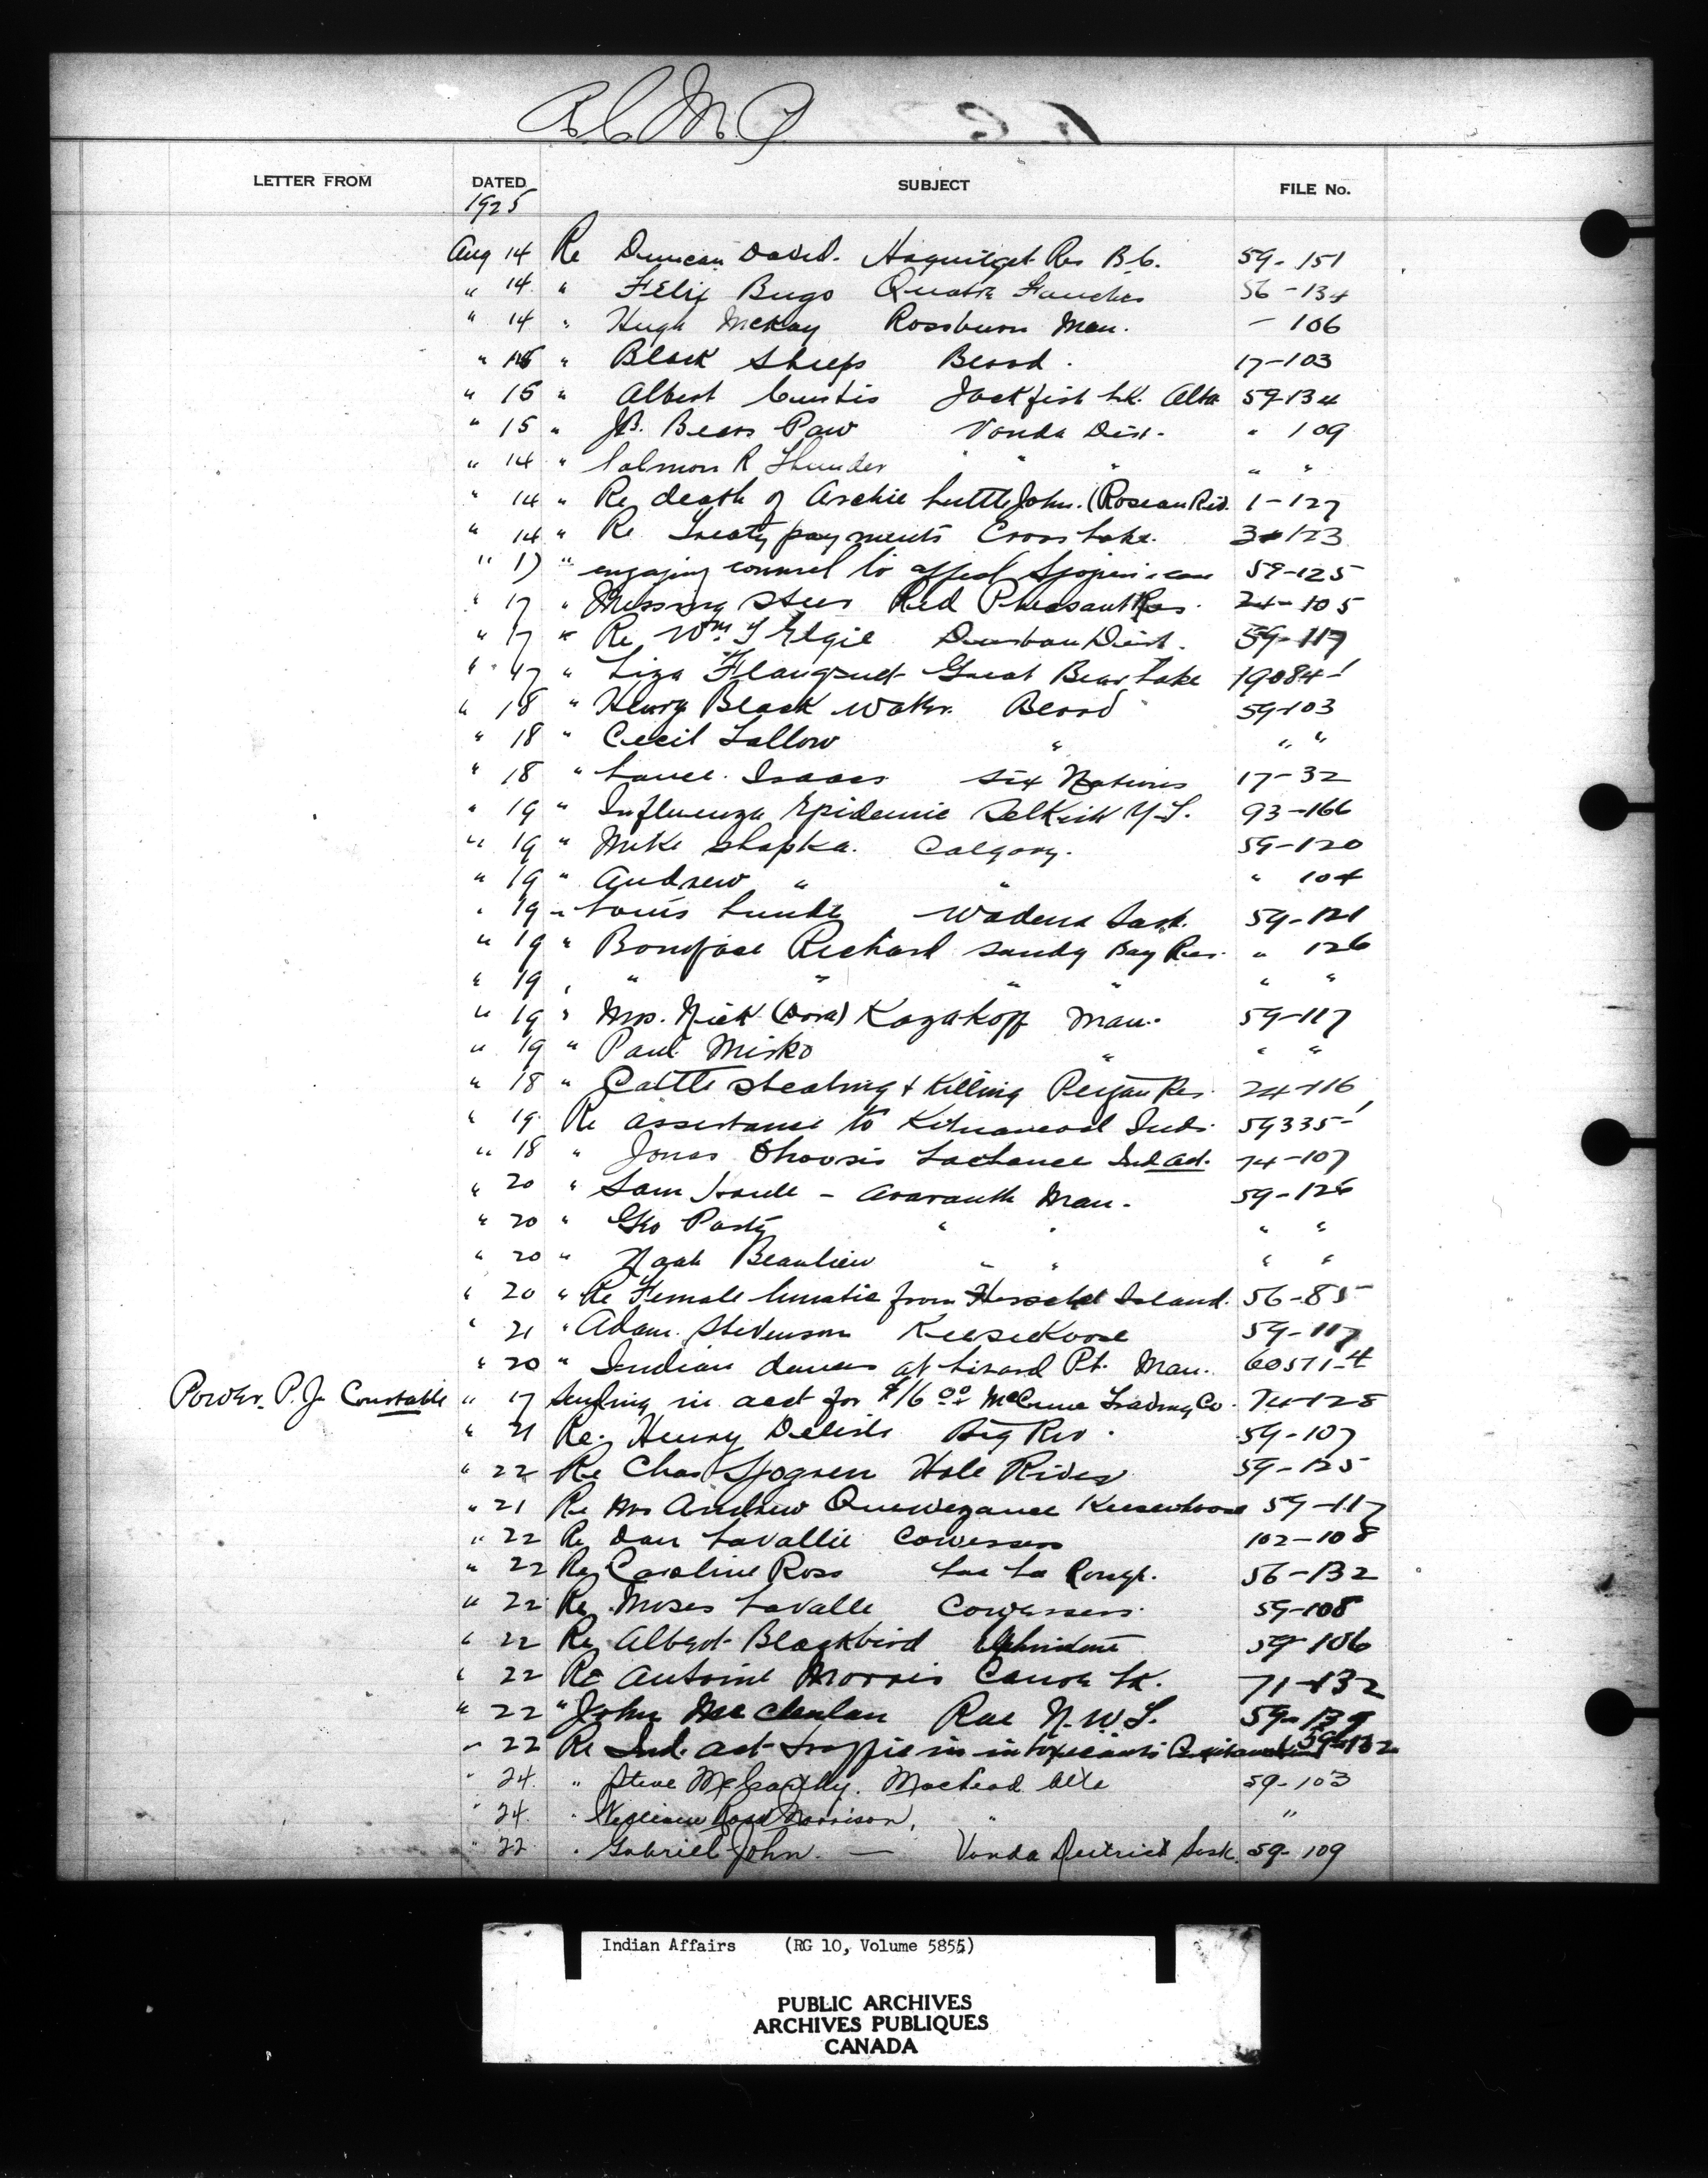 R.C.M.P.
LETTER FROM DATED SUBJECT FILE No.
1925
Aug 14 Re Duncan David. Haguilget Res B.C. 59-151
" 14 " Felix Bugo Quatre Fourches 56-134
" 14 " Hugh McKay Rossburn Man. - 106
" 15 " Black Sheep Blood. 17-103
" 15 " Albert Custis Jackfish Lk. Alta 59-134
" 15 " J.B. Bears Paw Vonda Dist. " 109
" 14 " Salmon R Thunder " " " " "
" 14 " Re death of Archie Little John. (Roseau Riv. 1-127
" 14 " Re Treaty payments Cross Lake. 34-123
" 17 " engaging counsel to 59-125
" 17 " Missing Steer Red Pheasant Res. 24-105
" 17 " Re Wm. T Elgie Durban Dist. 59-117
" 17 " Liza Great Bear Lake 19084-1
" 18 " Henry Black Water Blood 59-103
" 18 " Cecil Tallow " " "
" 18 " Lance. Isaacs Six Nations 17-32
" 19 " Influenza Epidemic Selkirk Y.T. 93-166
" 19 " Mike Shapka. Calgary. 59-120
" 19 " Andrew " " " 104
" 19 " Louis Wadena Sask. 59-121
" 19 " Boniface Richard Sandy Bay Res. " 126
" 19 " " " " " " "
" 19 " Mrs. Nick (Dora) Kazakoff Man. 59-117
" 19 " Paul Misko " " "
" 18 " Cattle stealing & Killing Peigan Res. 24-116
" 19 Re assistance to Kitwancool Inds. 59335-1
" 18 " Jonas Lachance Ind Act. 74-107
" 20 " Sam - Amaranth Man. 59-126
" 20 " Geo Party " " " "
" 20 " Noah Beaulieu " " " "
" 20 " Re Female lunatic from Herschel Island. 56-85
" 21 " Adam Stevenson Keeseekoose 59-117
" 20 " Indian dances at Lizard Pt. Man. 60511-4
Power. P.J. Constable " 17 Sending in acct for $16.00 McCrume Trading Co. 74-128
" 21 Re. Henry Delisle Big Riv. 59-107
" 22 Re Chas Spogren Hole River 59-125
" 21 Re Mrs Andrew Quewezance Keeseekoose 59-117
" 22 Re Dan Lavallie Cowessess 102-108
" 22 Re Caroline Ross Lac La Ronge. 56-132
" 22 Re Moses Lavalle Cowessess. 59-108
" 22 Re Albert Blackbird 59-106
" 22 Re Antoine Morris Canoe Lk. 71-132
" 22 " John McClenlan Rae N.W.T. 59-139
" 22 Re Ind. act traffic in intoxicants 59-132
" 24. " Steve McCarthy. Macleod Alta 59-103
" 24. " William Ross Morrison, " "
" 22 " Gabriel John. — Vonda District Sask. 59-109
Indian Affairs (RG 10, Volume 5855)
PUBLIC ARCHIVES
ARCHIVES PUBLIQUES
CANADA